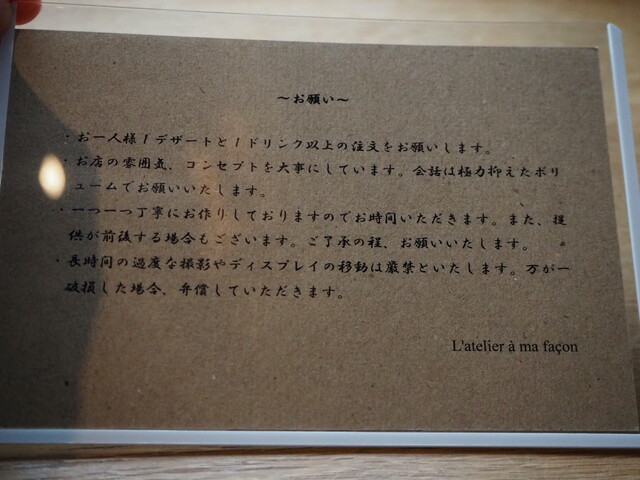 ～お願い～
・お一人様1デザートと1ドリンク以上の注文をお願いします。
・お店の雰囲気、コンセプトを大事にしています。会話は極力抑えたボリ
ュームでお願いいたします。
・一つ一つ丁寧にお作りしておりますのでお時間いただきます。また、提
供が前後する場合もございます。ご了承の程、お願いいたします。
・長時間の過度な撮影やディスプレイの移動は厳禁といたします。万が一
破損した場合、弁償していただきます。
L'atelier à ma façon